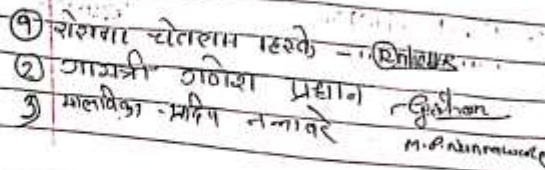 ① रोशना चेतराम हरके -
② गायत्री गणेश प्रधान
3) मालविका - प्रदिप ननावरे
M.P. Nannaware